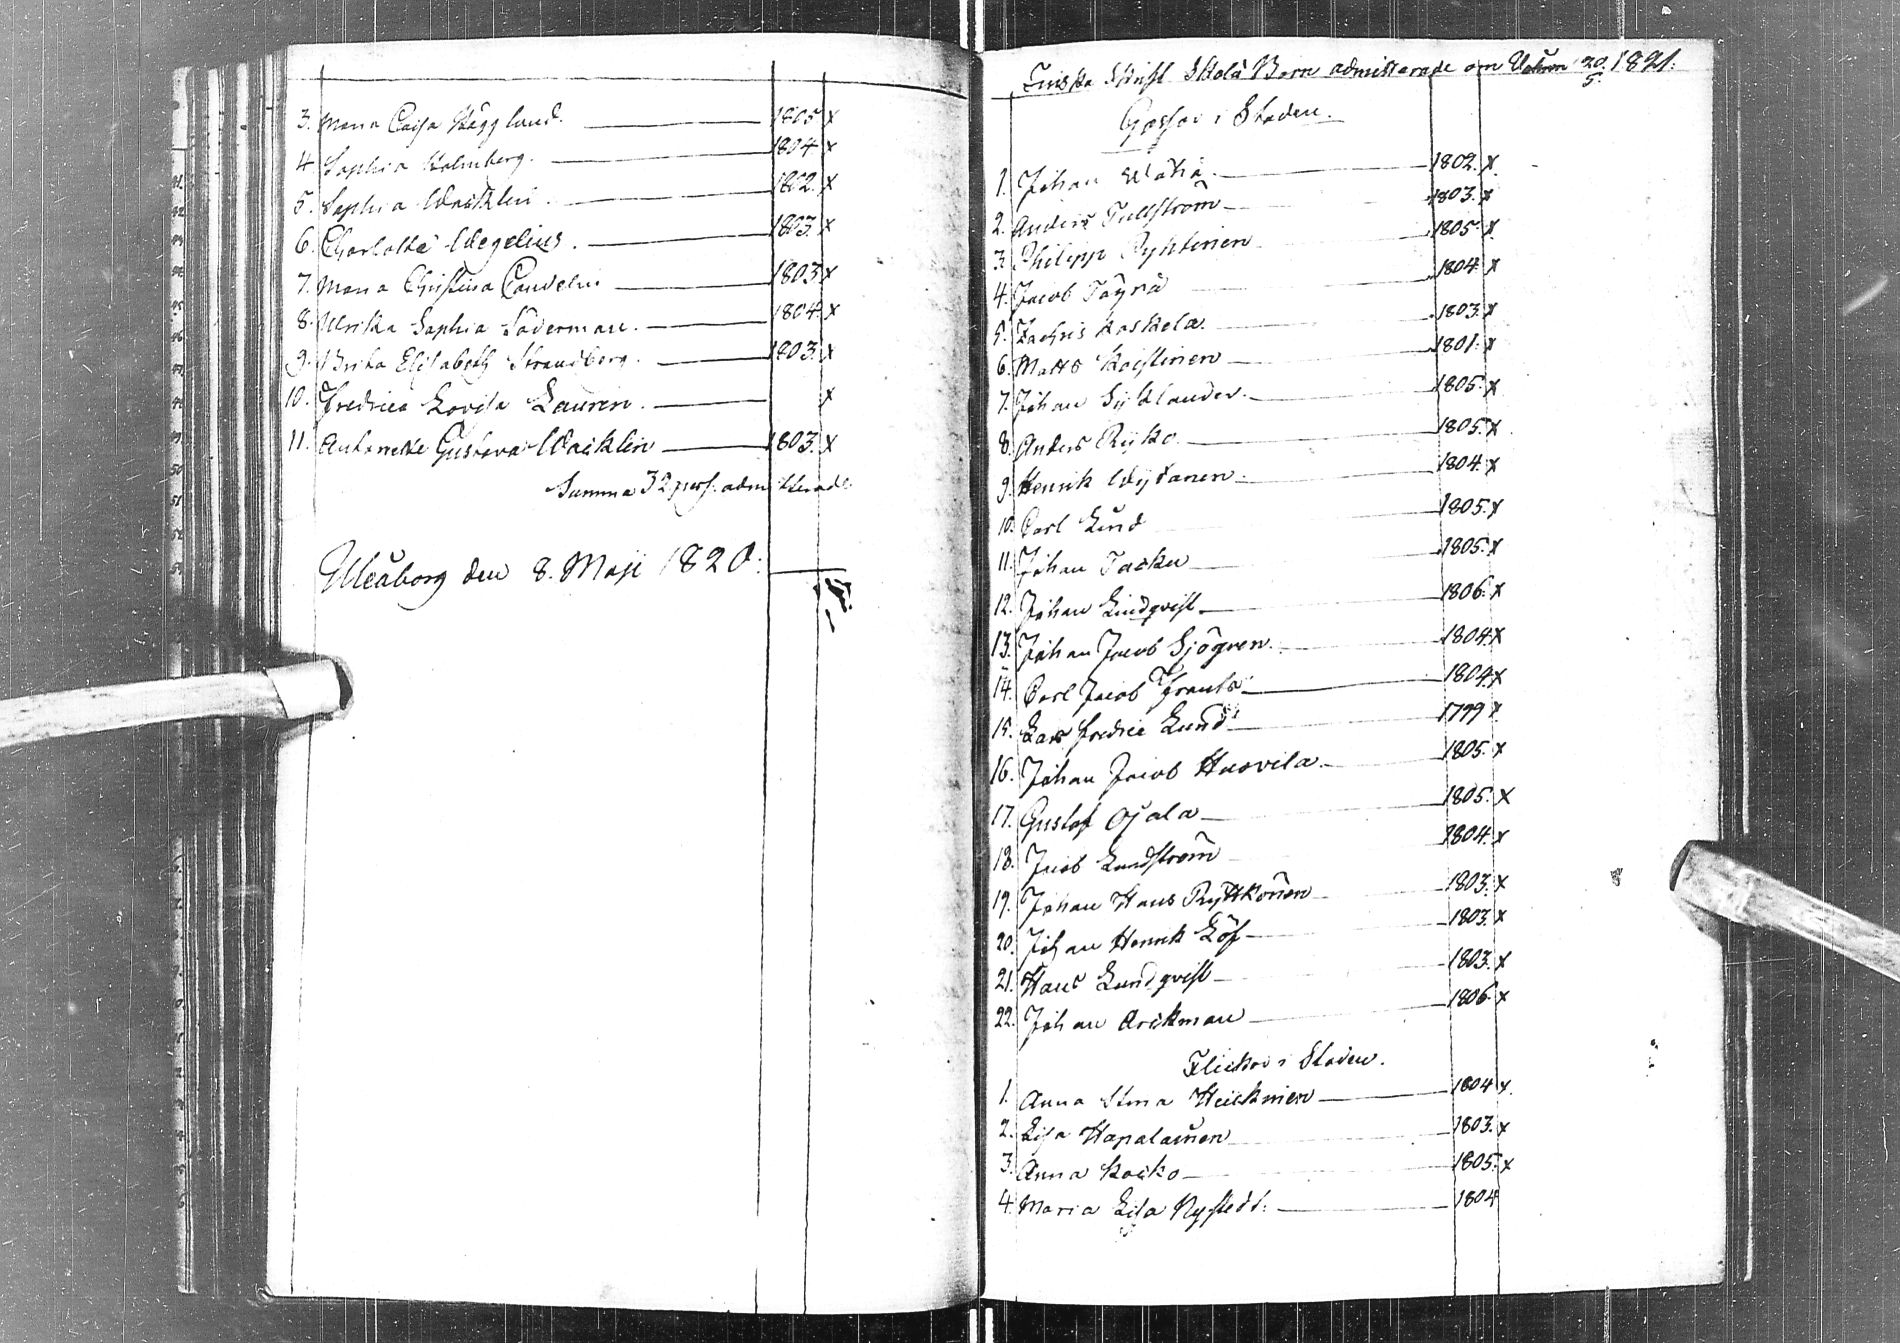 3. Maria Caisa Häggland. 1805 x
4 Sophia Holmberg. 1804 x
5. Sophia Wacklin. 1802. x
6. Charlotte Wegelius. 1803. x
7. Maria Christina Candelin 1803 x
8. Ulrika Sophia Söderman. 1804. x
9. Brita Elisabeth Strandberg. 1803. x
10. Fredrica Lovisa Lauren. x
11. Antonette Gustava Wacklin 1803. x
Summa 32 pers. admitterade.
Uleåborg den 8. Maji 1820.
Finska Skrift Skola Barn admitterade om Våren 20/5. 1821.
Gossar i Staden.
1. Johan 1802. x
2. Anders Tullström 1803. x
3. Philipp Pyhtinen 1805 x
4. Jacob 1804 x
5. Zachris Koskela. 1803. x
6. Matts Koistinen 1801. x
7. Johan Sylvander. 1805. x
8. Anders 1805. x
9. Henrik 1804 x
10. Carl Lund 1805. x
11. Johan Tacku 1805. x
12. Johan Lindqvist 1806. x
13. Johan Jacob Sjögren. 1804. x
14. Carl Jacob Frants 1804. x
15. Lars Fredric Lund 1799 x
16. Johan Jacob Huovila 1805. x
17. Gustaf Ojala 1805. x
18. Jacob Lundström 1804. x
19. Johan Hans Pyykönen 1803. x
20. Johan Henrik Löf 1803. x
21. Hans Lundqvist 1803. x
22. Johan Arckman 1806 x
Flickor i Staden.
1. Anna Stina Heickinen 1804 x
2. Lisa Hapalainen 1803. x
3. Anna Kocko 1805. x
4. Maria Lisa Nystedt. 1804